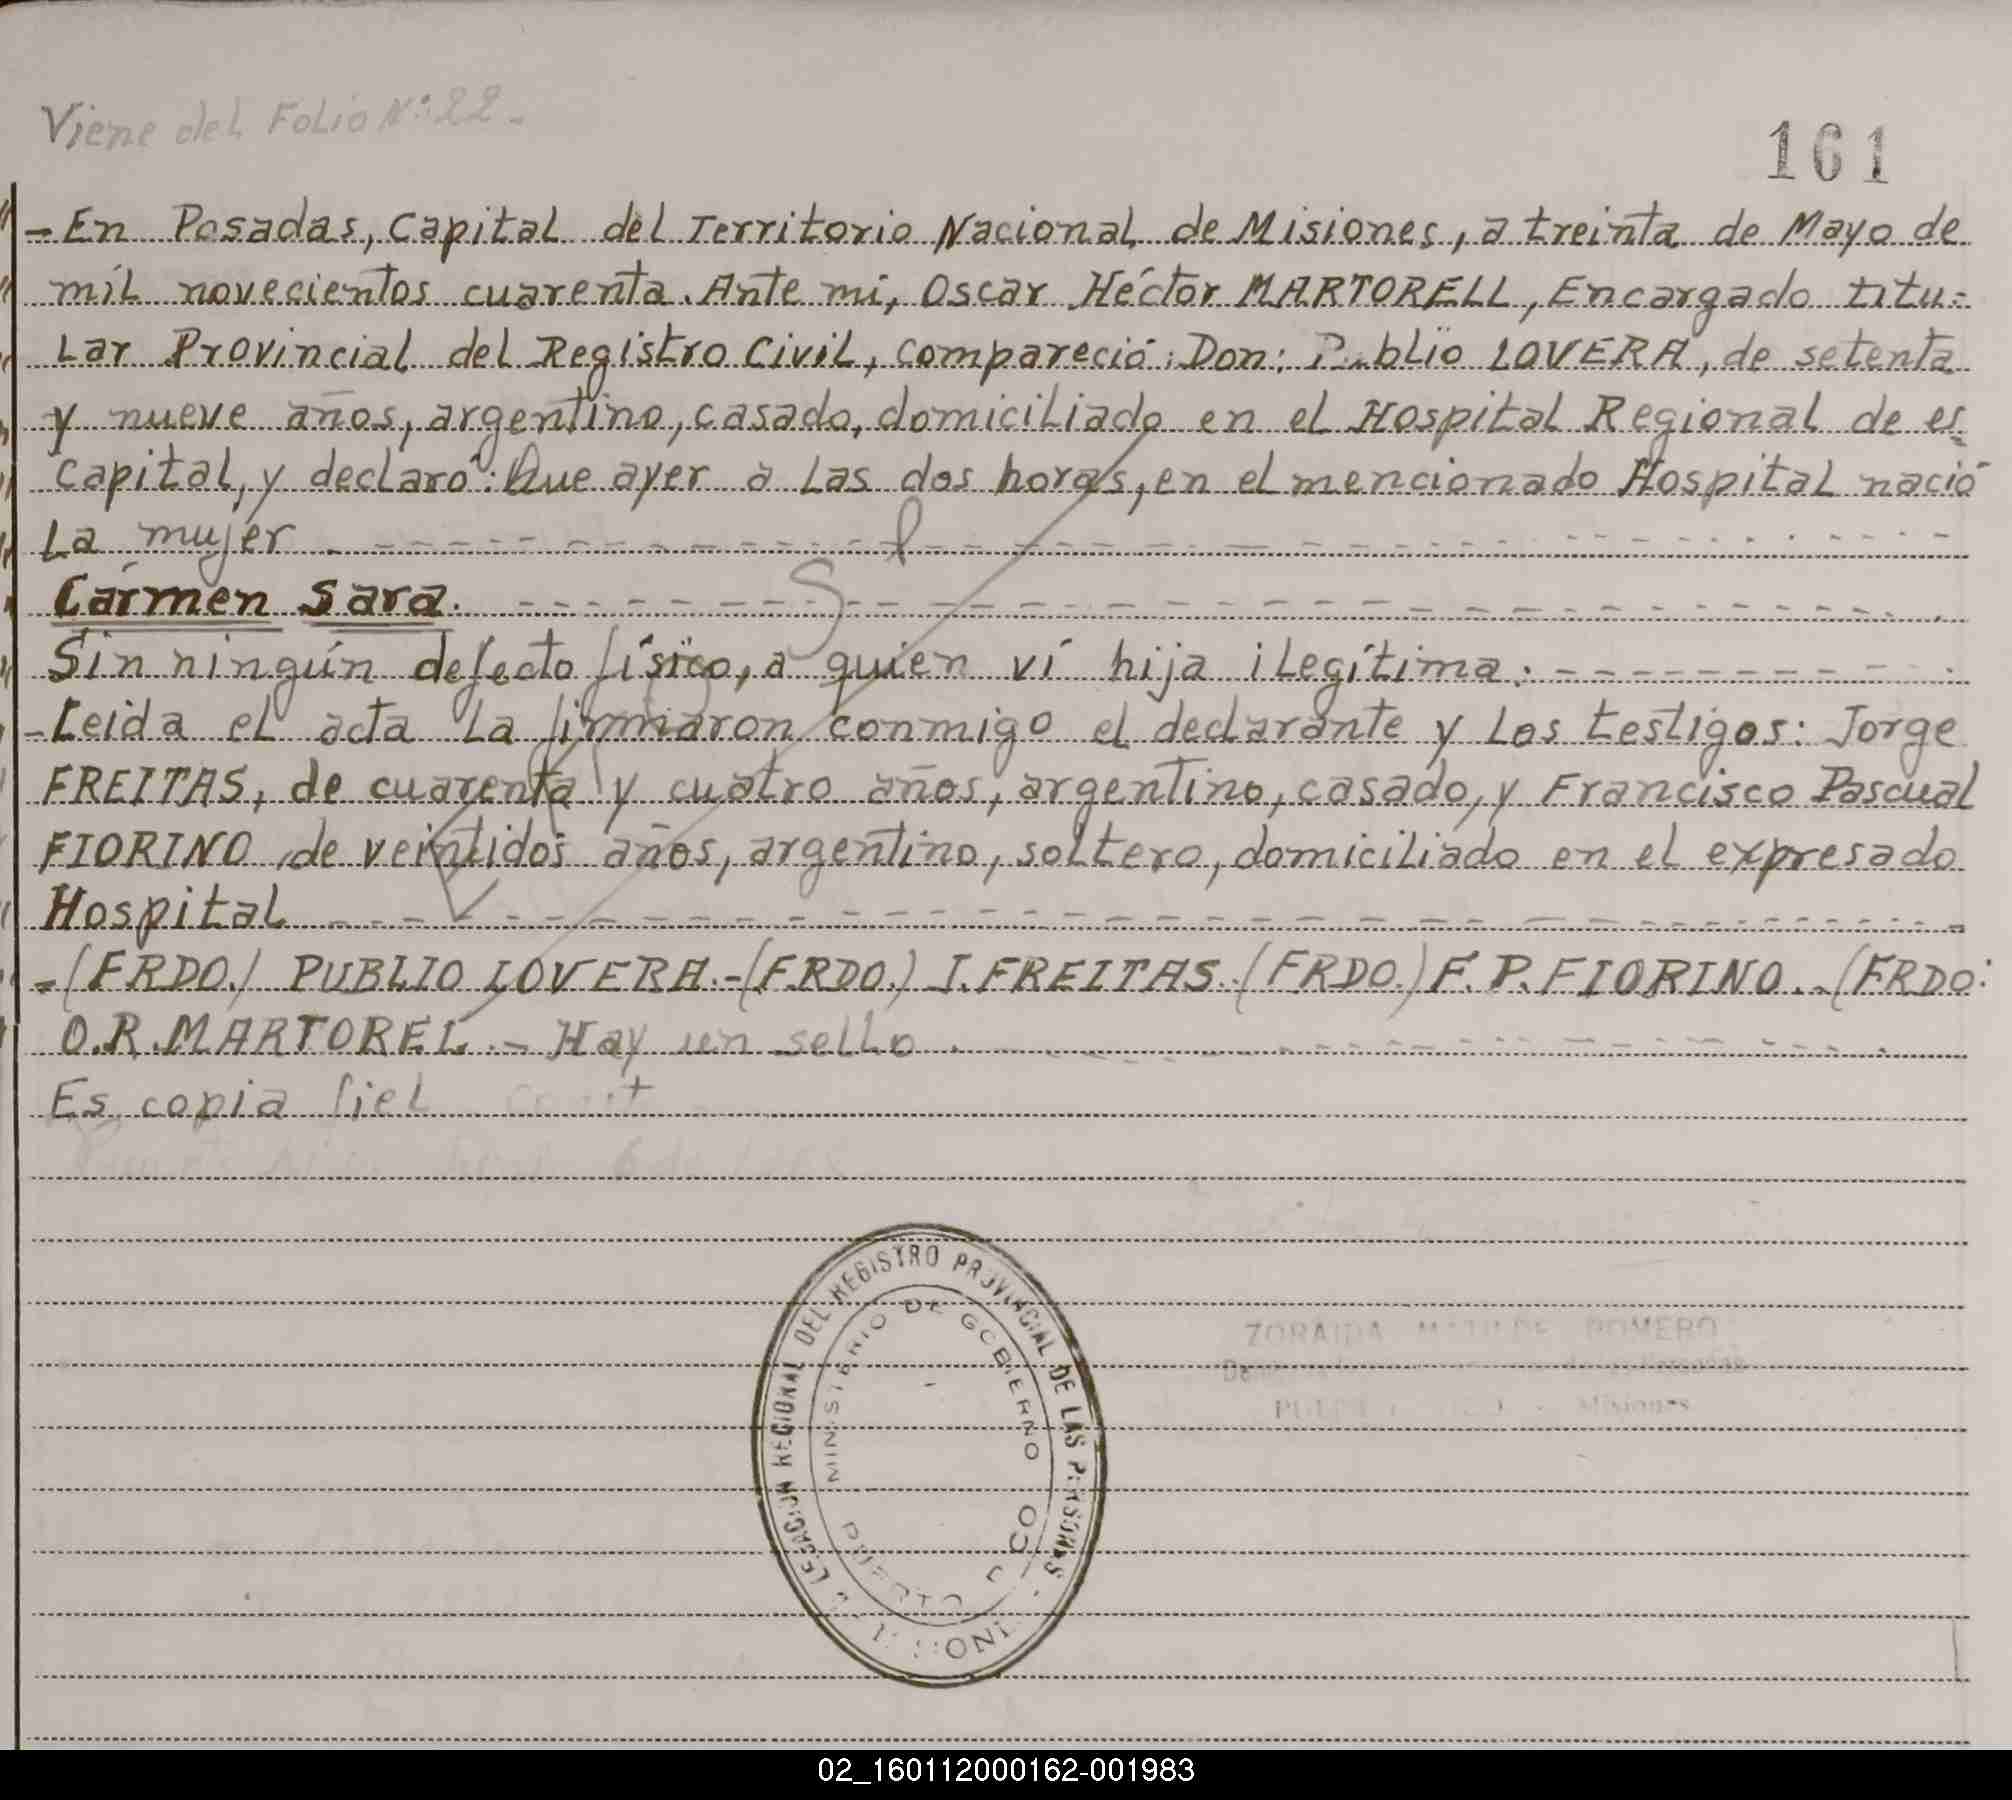 Viene del Folio Nº: 22.-
161
- En Posadas, Capital del Territorio Nacional de Misiones, a treinta de Mayo de
mil novecientos cuarenta. Ante mí, Oscar Héctor MARTORELL, Encargado titu=
lar Provincial del Registro Civil, compareció: Don: Publio LOVERA, de setenta
y nueve años, argentino, casado, domiciliado en el Hospital Regional de es
capital, y declaró: Que ayer a las dos horas, en el mencionado Hospital nació
la mujer
Cármen Sara.
Sin ningún defecto físico, a quien ví hija ilegítima.
- Leida el acta la firmaron conmigo el declarante y los testigos: Jorge
FREITAS, de cuarenta y cuatro años, argentino, casado, y Francisco Pascual
FIORINO, de veintidós años, argentino, soltero, domiciliado en el expresado
Hospital
- (FRDO.) PUBLIO LOVERA.- (FRDO.) J. FREITAS. (FRDO.) F. P. FIORINO.. (FRDO:
O.R. MARTOREL.- Hay un sello.
Es copia fiel
DELEGACION REGIONAL DEL REGISTRO PROVINCIAL DE LAS PERSONAS
MINISTERIO DE GOBIERNO
PUERTO
ZORAIDA MATILDE ROMERO
Misiones
02_160112000162-001983